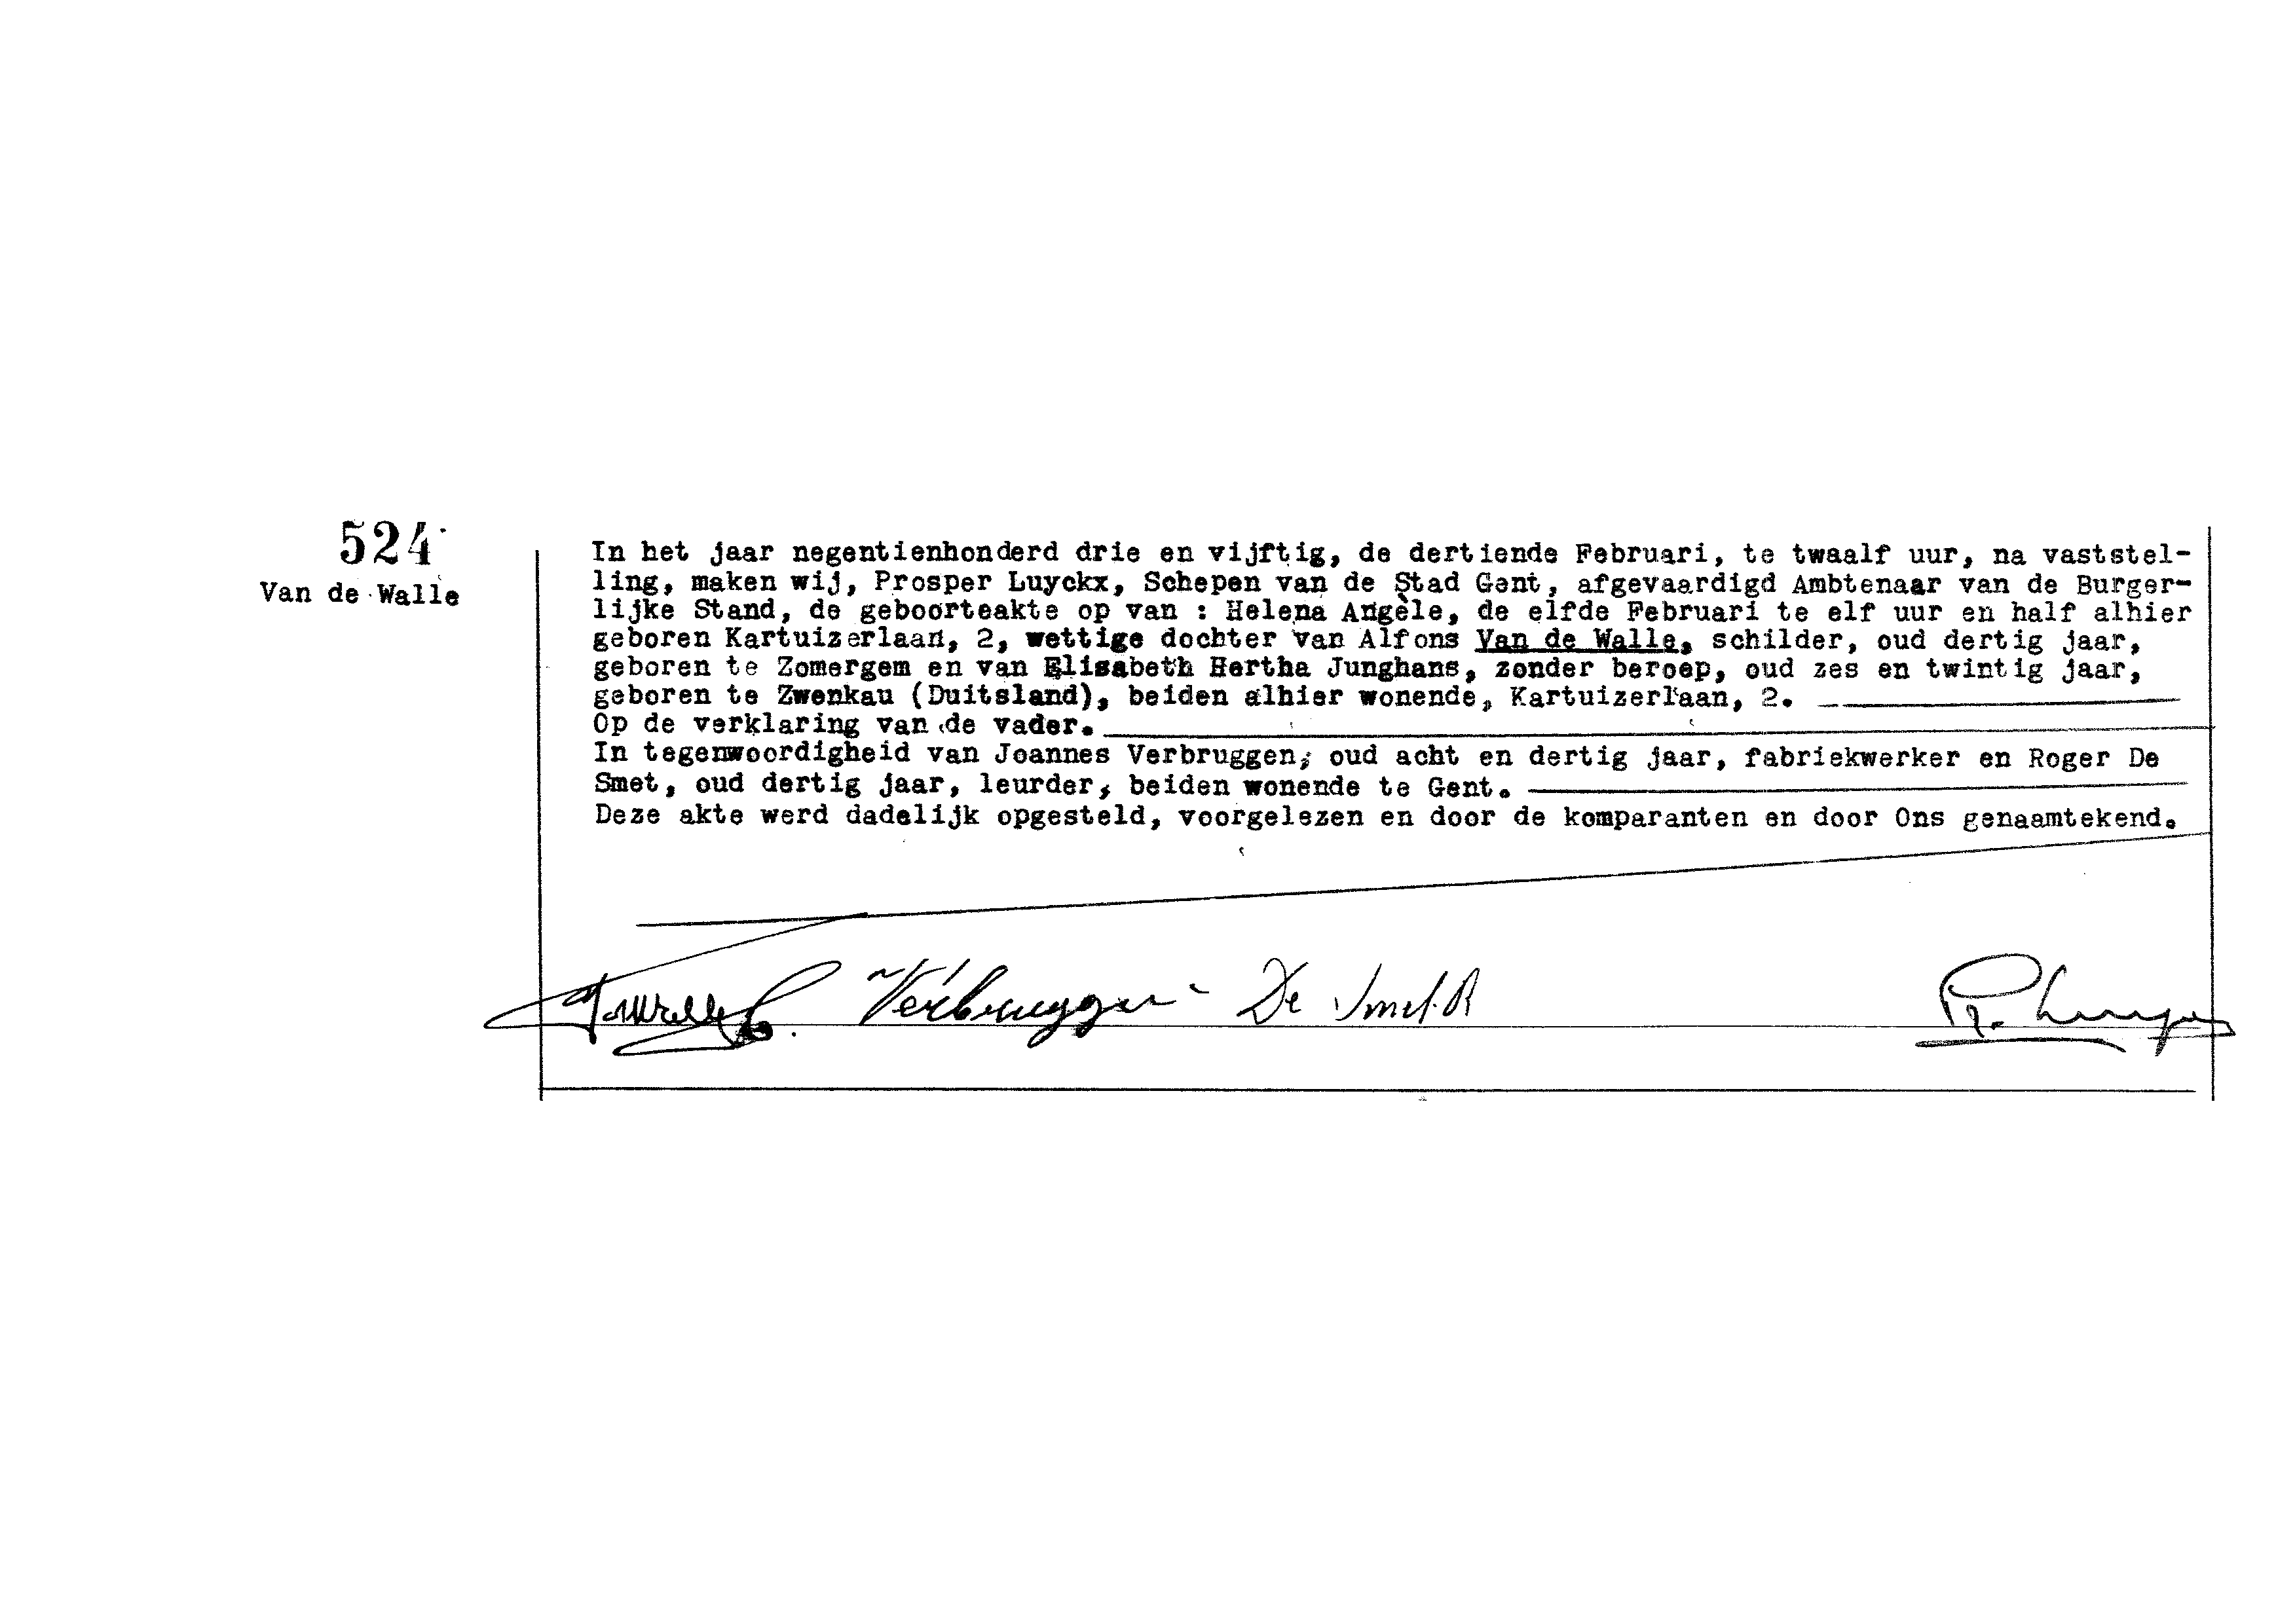 524
Van de Walle
In het jaar negentienhonderd drie en vijftig, de dertiende Februari, te twaalf uur, na vaststel-
ling, maken wij, Prosper Luyckx, Schepen van de Stad Gent, afgevaardigd Ambtenaar van de Burger-
lijke Stand, de geboorteakte op van : Helena Angèle, de elfde Februari te elf uur en half alhier
geboren Kartuizerlaan, 2, wettige dochter van Alfons Van de Walle, schilder, oud dertig jaar,
geboren te Zomergem en van Elisabeth Hertha Junghans, zonder beroep, oud zes en twintig jaar,
geboren te Zwenkau (Duitsland), beiden alhier wonende, Kartuizerlaan, 2.
Op de verklaring van de vader.
In tegenwoordigheid van Joannes Verbruggen, oud acht en dertig jaar, fabriekwerker en Roger De
Smet, oud dertig jaar, leurder, beiden wonende te Gent.
Deze akte werd dadelijk opgesteld, voorgelezen en door de komparanten en door Ons genaamtekend.
Verbruggen De Smet. R